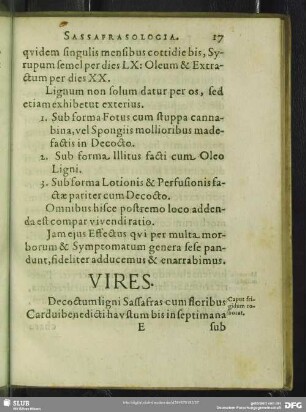 SASSAFRASOLOGIA. 17
qvidem singulis mensibus cottidie bis, Sy-
rupum semel per dies LX: Oleum & Extra-
ctum per dies XX.
Lignum non solum datur per os, sed
etiam exhibetur exterius.
1. Sub forma Fotus cum stuppa canna-
bina, vel Spongiis mollioribus made-
factis in Decocto.
2. Sub forma Illitus facti cum Oleo
Ligni.
3. Sub forma Lotionis & Perfusionis fa-
ctæ pariter cum Decocto.
Omnibus hisce postremo loco adden-
da est compar vivendi ratio.
Jam ejus Effectus qvi per multa mor-
borum & Symptomatum genera sese pan-
dunt, fideliter adducemus & enarrabimus.
VIRES.
Decoctum ligni Sassafras cum floribus
Carduibenedicti havstum bis in septimana
Caput fri-
gidum ro-
E sub
SLUB
DFG